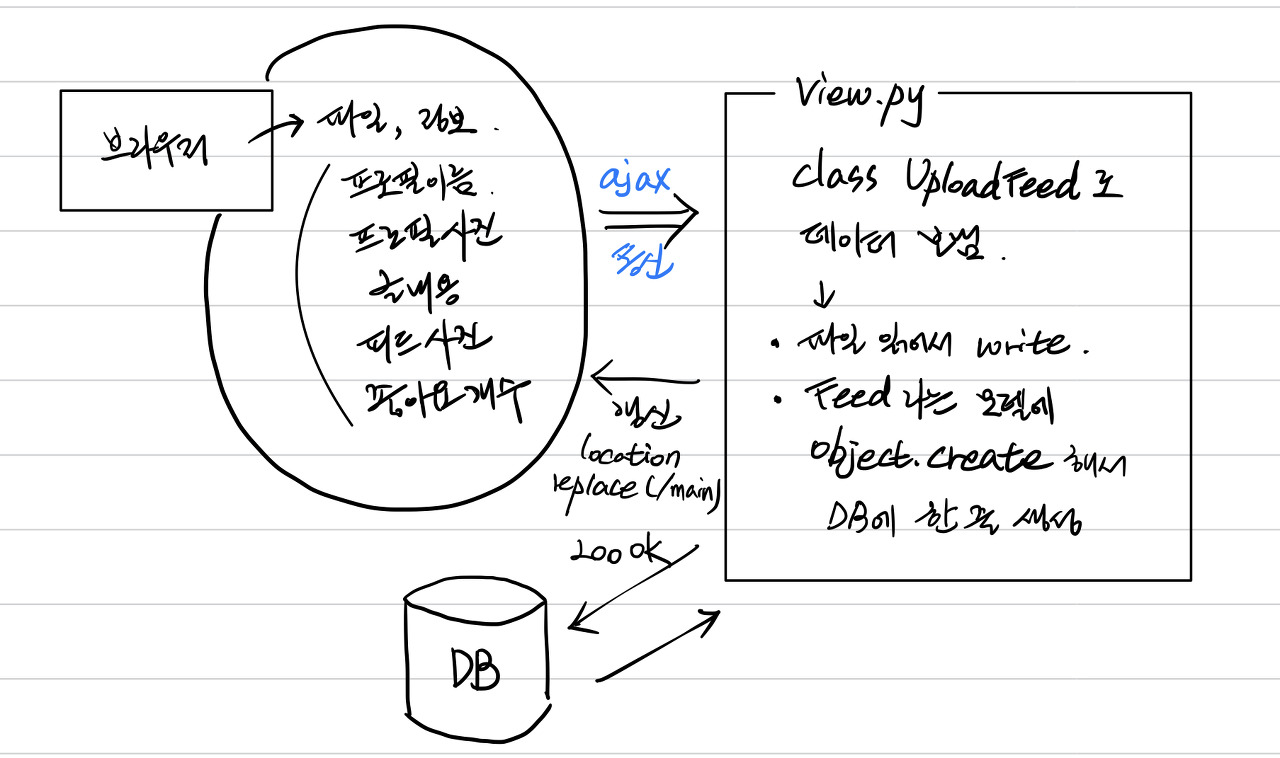 브라우저
파일, 정보.
프로필이름.
프로필사진
글내용
피드사진
좋아요개수
ajax
통신
갱신
location
replace(/main)
200 ok
DB
View.py
class UploadFeed로
데이터 보냄.
↓
• 파일 읽어서 write.
• Feed라는 모델에
object.create 해서
DB에 한 줄 생성